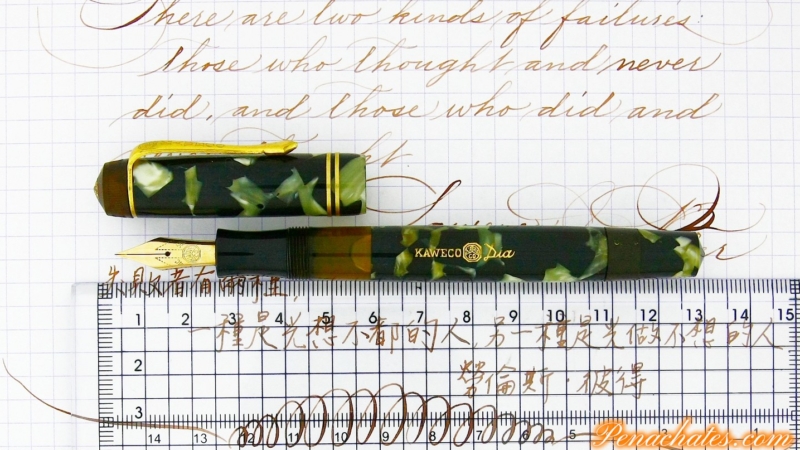 There are two kinds of failures:
those who thought and never
did, and those who did and
KAWECO Dia
失敗者有兩種,
一種是光想不都的人,另一種是光做不想的人
勞倫斯·彼得
1 2 3 4 5 6 7 8 9 10 11 12 13 14 15
2
3
14 13 12 11 10 9 8 7 6 5
Penachates.com